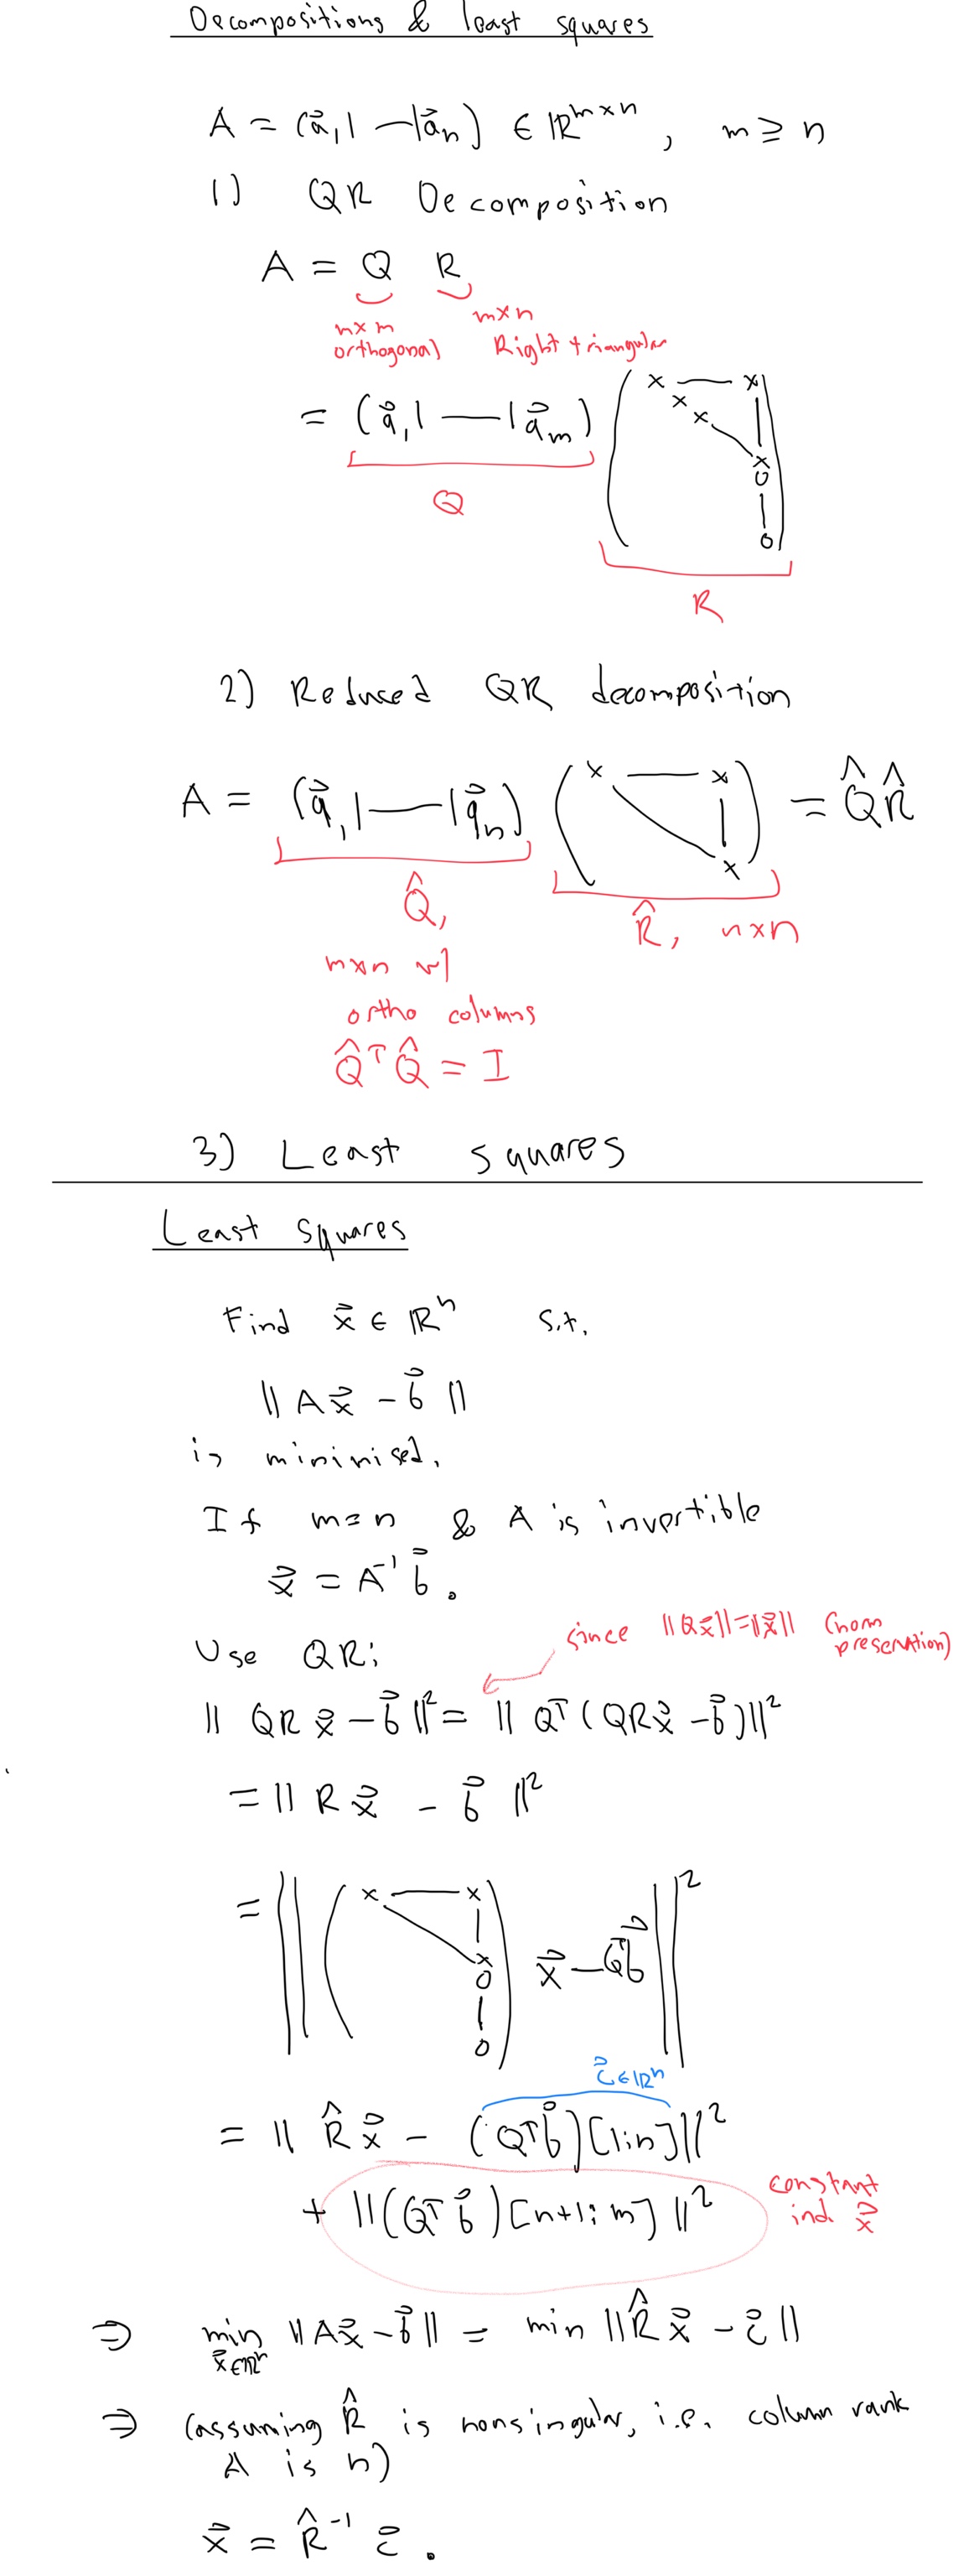 Decompositions & least squares
A = (a⃗₁|—|a⃗ₙ) ∈ ℝ^{m×n}, m ≥ n
1) QR Decomposition
A = Q R
m×m
orthogonal
m×n
Right triangular
= (q⃗₁|—|q⃗ₘ) ( x — x
x
x
x
0
|
0 )
Q
R
2) Reduced QR decomposition
A = (q⃗₁|—|q⃗ₙ) ( x — x
x ) = Q̂R̂
Q̂,
m×n w/
ortho columns
Q̂ᵀQ̂ = I
R̂, n×n
3) Least squares
Least squares
Find x⃗ ∈ ℝⁿ s.t.
‖Ax⃗ - b⃗‖
is minimised.
If m=n & A is invertible
x⃗ = A⁻¹b⃗.
since ‖Qx⃗‖=‖x⃗‖ (norm
preservation)
Use QR:
‖QRx⃗ - b⃗‖² = ‖Qᵀ(QRx⃗ - b⃗)‖²
= ‖Rx⃗ - b⃗‖²
= ‖( x — x
|
x
0
|
0 ) x⃗ - Qᵀb⃗‖²
c⃗ ∈ ℝⁿ
= ‖R̂x⃗ - (Qᵀb⃗)[1:n]‖²
+ ‖(Qᵀb⃗)[n+1:m]‖²
constant
ind. x⃗
⇒ min_{x⃗∈ℝⁿ} ‖Ax⃗ - b⃗‖ = min ‖R̂x⃗ - c⃗‖
⇒ (assuming R̂ is nonsingular, i.e. column rank
A is n)
x⃗ = R̂⁻¹ c⃗.